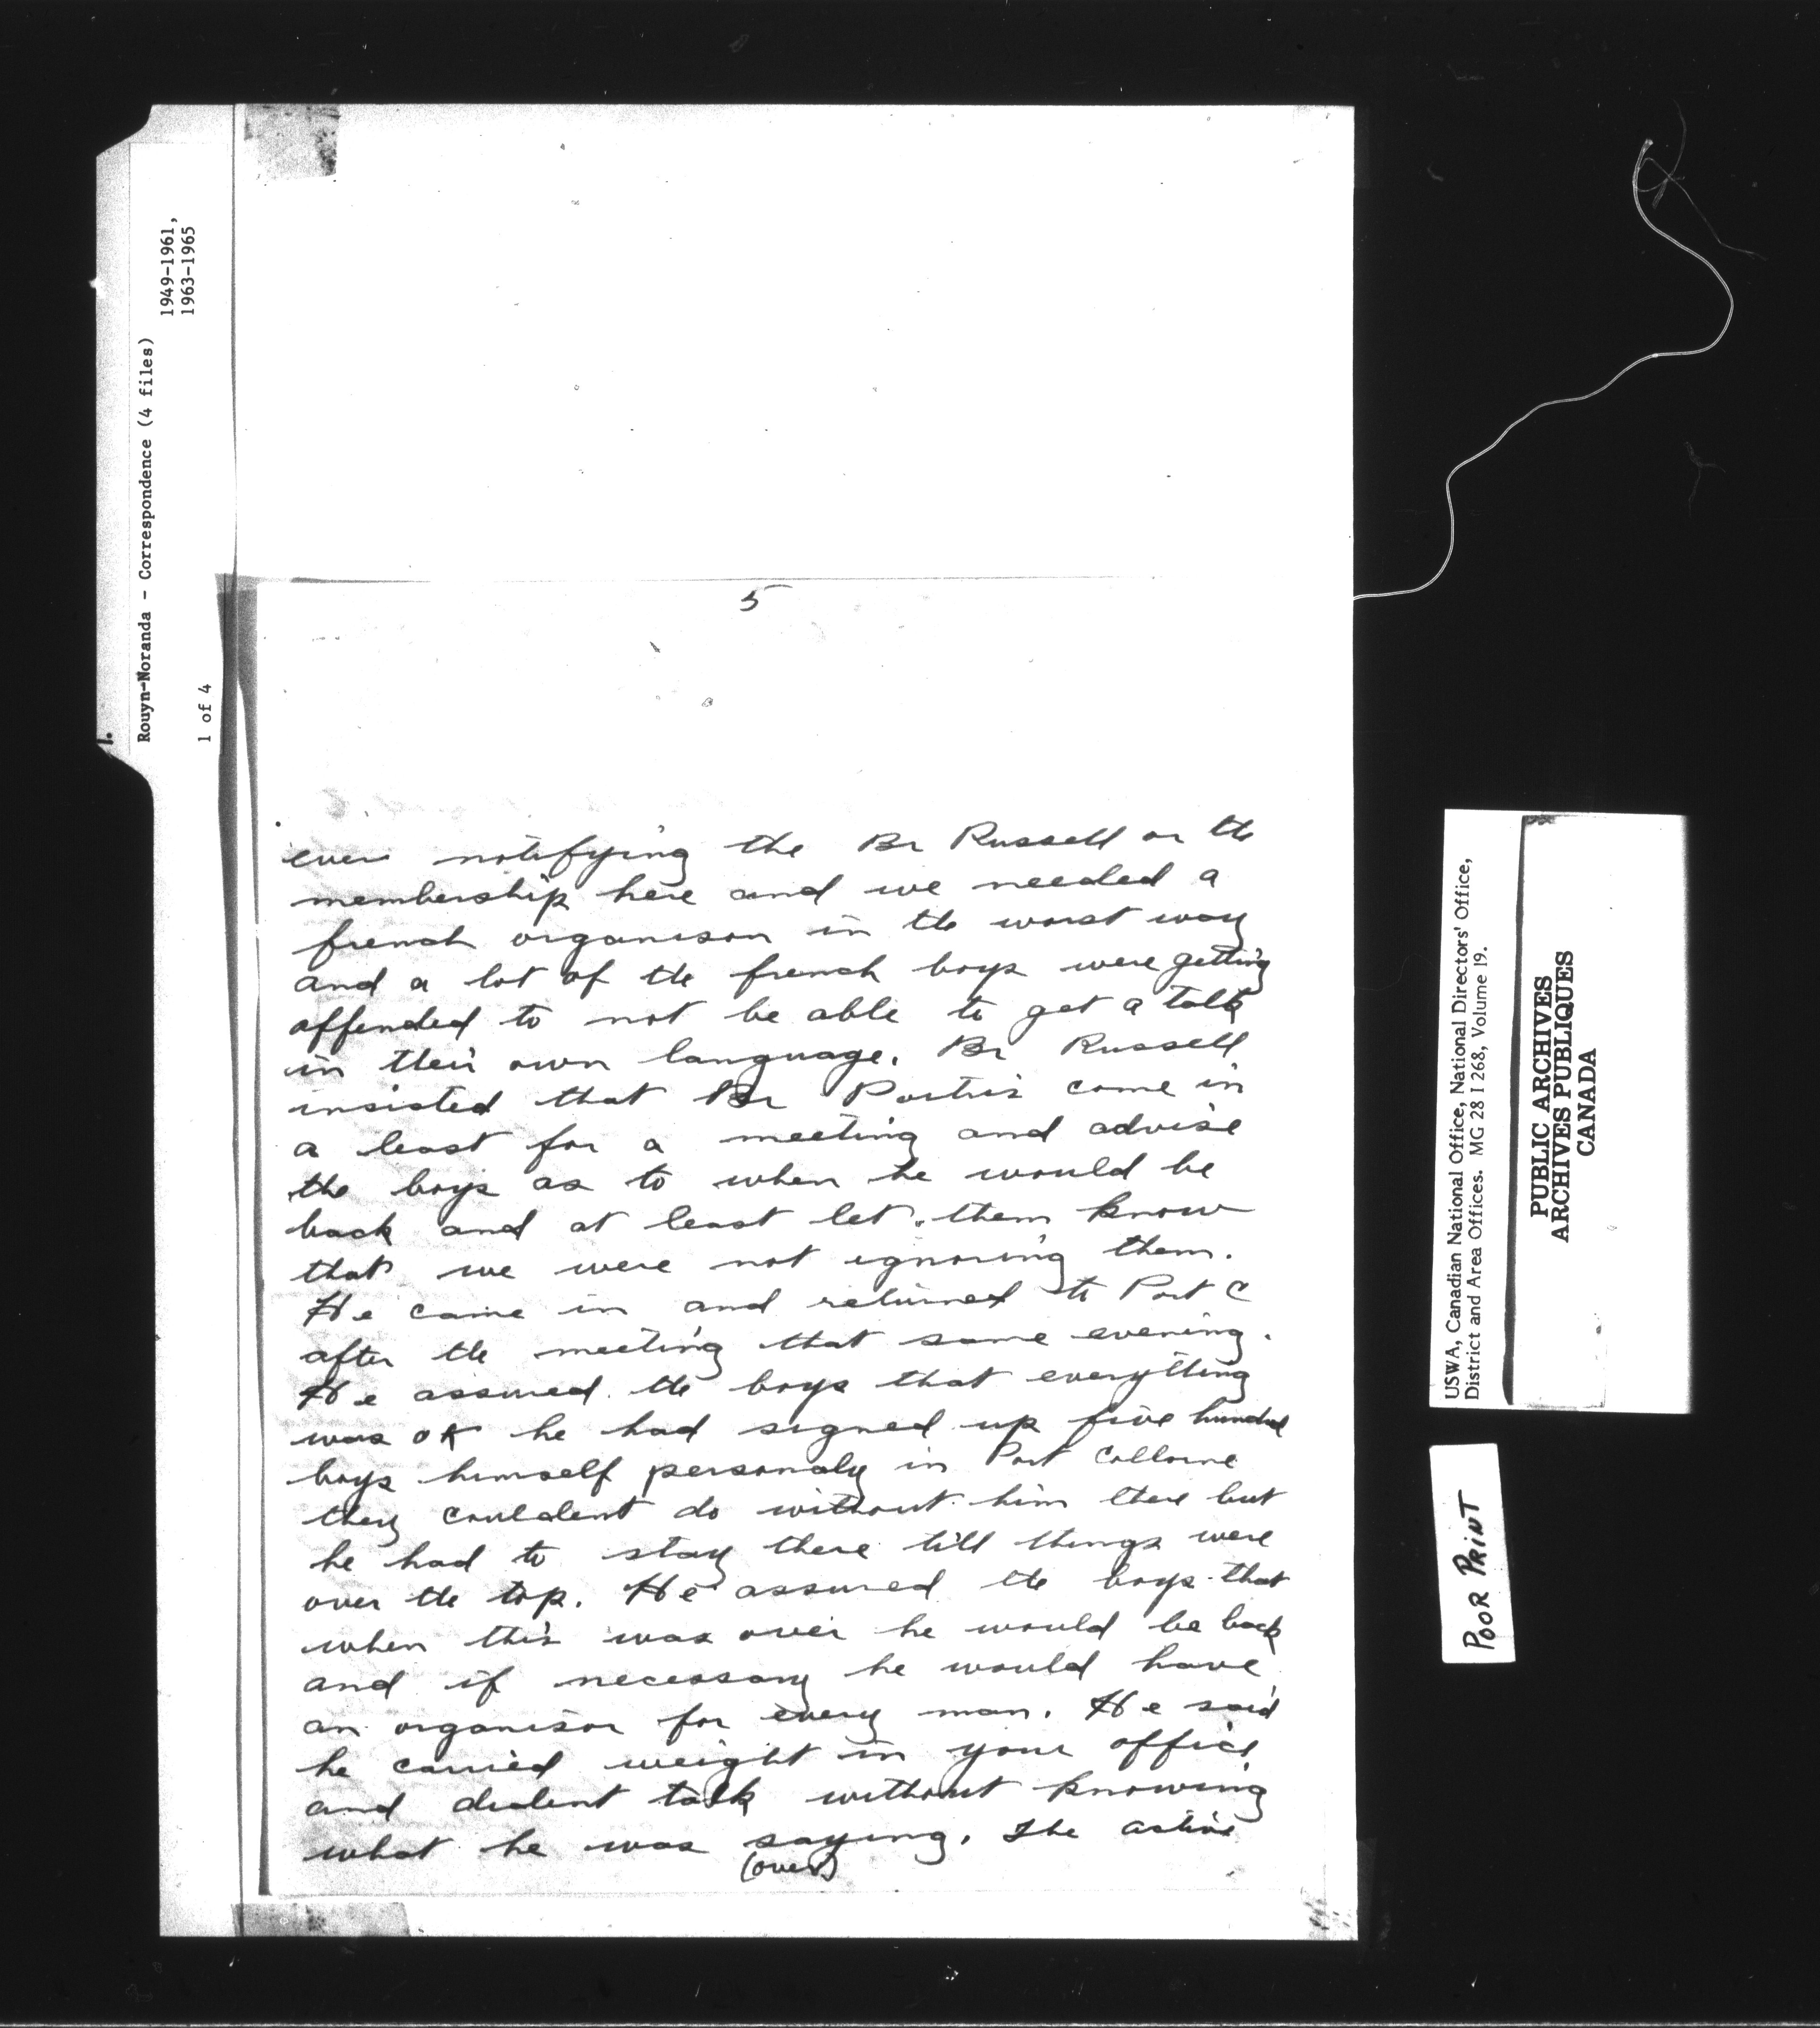 Rouyn-Noranda - Correspondence (4 files)
1949-1961,
1963-1965
1 of 4
1.
5
even notifying the Br Russell or the
membership here and we needed a
french organison in the worst way
and a lot of the french boys were getting
offended to not be able to get a talk
in their own language. Br Russell
insisted that Br Portis come in
a least for a meeting and advise
the boys as to when he would be
back and at least let them know
that we were not ignoring them.
He came in and returned to Port C
after the meeting that same evening.
He assured the boys that everything
was OK he had signed up five hundred
boys himself personaly in Port Collorne
they couldent do without him there but
he had to stay there till things were
over the top. He assured the boys that
when this was over he would be back
and if necessary he would have
an organisor for every man. He said
he carried weight in your office
and dident talk without knowing
what he was saying. The active
(over)
USWA, Canadian National Office, National Directors' Office,
District and Area Offices. MG 28 I 268, Volume 19.
PUBLIC ARCHIVES
ARCHIVES PUBLIQUES
CANADA
POOR PRINT